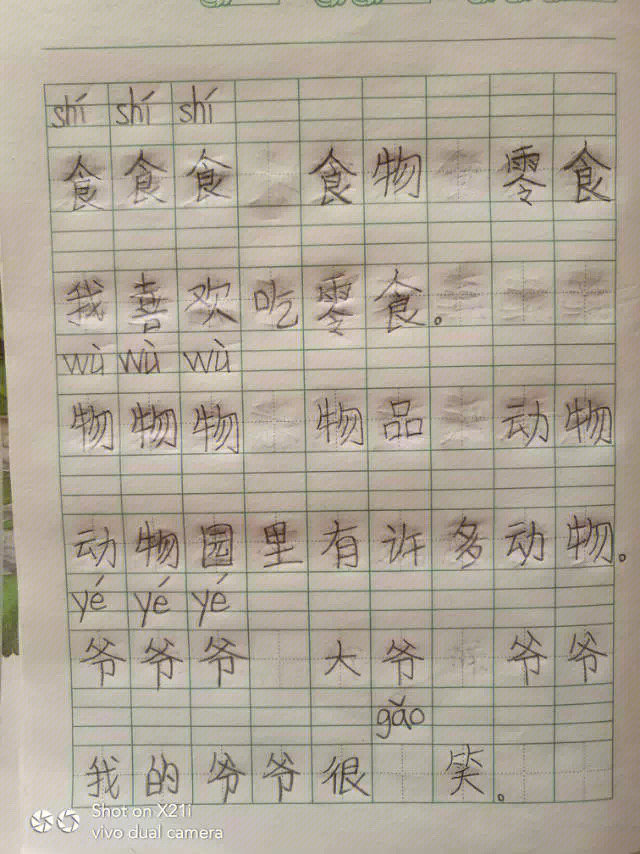 shí shí shí
食 食 食 食 物 零 食
我 喜 欢 吃 零 食 。
wù wù wù
物 物 物 物 品 动 物
动 物 园 里 有 许 多 动 物 。
yé yé yé
爷 爷 爷 大 爷 爷 爷
gǎo
我 的 爷 爷 很 笑 。
Shot on X21i
vivo dual camera